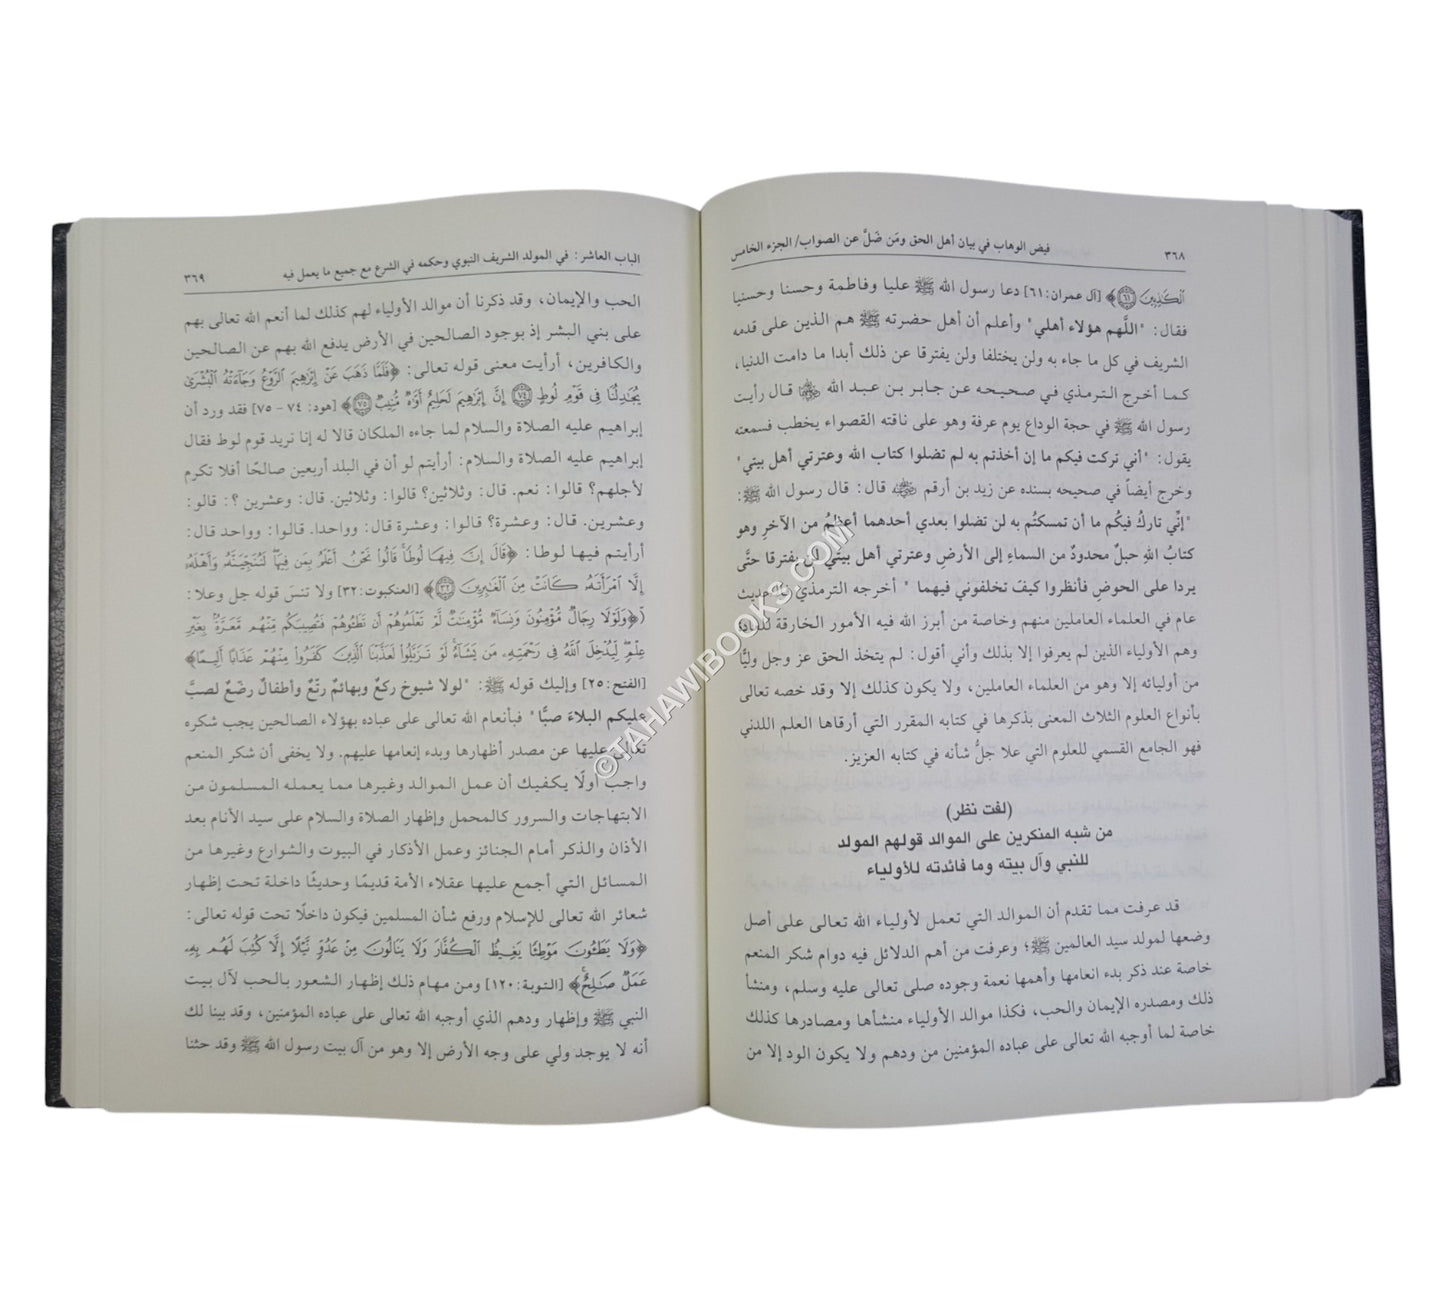 ٣٦٨ فيض الوهاب في بيان أهل الحق ومَن ضَلَّ عن الصواب/ الجزء الخامس
ٱلْكَٰذِبِينَ ٦١﴾ [آل عمران: ٦١] دعا رسول الله ﷺ عليا وفاطمة وحسنا وحسنيا
فقال: "اللَّهم هؤلاء أهلي" وأعلم أن أهل حضرته ﷺ هم الذين على قدمه
الشريف في كل ما جاء به ولن يختلفا ولن يفترقا عن ذلك أبدا ما دامت الدنيا،
كما أخرج الترمذي في صحيحه عن جابر بن عبد الله رضي الله عنه قال رأيت
رسول الله ﷺ في حجة الوداع يوم عرفة وهو على ناقته القصواء يخطب فسمعته
يقول: "أني تركت فيكم ما إن أخذتم به لم تضلوا كتاب الله وعترتي أهل بيتي"
وخرج أيضاً في صحيحه بسنده عن زيد بن أرقم رضي الله عنه قال: قال رسول الله ﷺ:
"إنِّي تاركُ فيكُم ما أن تمسكتُم به لن تضلوا بعدي أحدهما أعظمُ من الآخرِ وهو
كتابُ اللهِ حبلٌ محدودٌ من السماءِ إلى الأرضِ وعترتي أهل بيتي لن يفترقا حتَّى
يردا على الحوضِ فأنظروا كيفَ تخلفوني فيهما" أخرجه الترمذي
عام في العلماء العاملين منهم وخاصة من أبرز الله فيه الأمور الخارقة للعادة
وهم الأولياء الذين لم يعرفوا إلا بذلك وأني أقول: لم يتخذ الحق عز وجل وليًّا
من أوليائه إلا وهو من العلماء العاملين، ولا يكون كذلك إلا وقد خصه تعالى
بأنواع العلوم الثلاث المعنى بذكرها في كتابه المقرر التي أرقاها العلم اللدني
فهو الجامع القسمي للعلوم التي علا جلُّ شأنه في كتابه العزيز.
(لفت نظر)
من شبه المنكرين على الموالد قولهم المولد
للنبي وآل بيته وما فائدته للأولياء
قد عرفت مما تقدم أن الموالد التي تعمل لأولياء الله تعالى على أصل
وضعها لمولد سيد العالمين ﷺ؛ وعرفت من أهم الدلائل فيه دوام شكر المنعم
خاصة عند ذكر بدء انعامها وأهمها نعمة وجوده صلى تعالى عليه وسلم، ومنشأ
ذلك ومصدره الإيمان والحب، فكذا موالد الأولياء منشأها ومصادرها كذلك
خاصة لما أوجبه الله تعالى على عباده المؤمنين من ودهم ولا يكون الود إلا من
الباب العاشر: في المولد الشريف النبوي وحكمه في الشرع مع جميع ما يعمل فيه ٣٦٩
الحب والإيمان، وقد ذكرنا أن موالد الأولياء لهم كذلك لما أنعم الله تعالى بهم
على بني البشر إذ بوجود الصالحين في الأرض يدفع الله بهم عن الصالحين
والكافرين، أرأيت معنى قوله تعالى: ﴿فَلَمَّا ذَهَبَ عَنْ إِبْرَٰهِيمَ ٱلرَّوْعُ وَجَآءَتْهُ ٱلْبُشْرَىٰ
يُجَٰدِلُنَا فِى قَوْمِ لُوطٍ ٧٤ إِنَّ إِبْرَٰهِيمَ لَحَلِيمٌ أَوَّٰهٌ مُّنِيبٌ ٧٥﴾ [هود: ٧٤ - ٧٥] فقد ورد أن
إبراهيم عليه الصلاة والسلام لما جاءه الملكان قالا له إنا نريد قوم لوط فقال
إبراهيم عليه الصلاة والسلام: أرأيتم لو أن في البلد أربعين صالحًا أفلا تكرم
لأجلهم؟ قالوا: نعم. قال: وثلاثين؟ قالوا: وثلاثين. قال: وعشرين ؟: قالو:
وعشرين. قال: وعشرة؟ قالوا: وعشرة قال: وواحدا. قالوا: وواحد قال:
أرأيتم فيها لوطا: ﴿قَالَ إِنَّ فِيهَا لُوطًا قَالُوا۟ نَحْنُ أَعْلَمُ بِمَن فِيهَا لَنُنَجِّيَنَّهُۥ وَأَهْلَهُۥٓ
إِلَّا ٱمْرَأَتَهُۥ كَانَتْ مِنَ ٱلْغَٰبِرِينَ ٣٢﴾ [العنكبوت: ٣٢] ولا تنسَ قوله جل وعلا:
(﴿وَلَوْلَا رِجَالٌ مُّؤْمِنُونَ وَنِسَآءٌ مُّؤْمِنَٰتٌ لَّمْ تَعْلَمُوهُمْ أَن تَطَـُٔوهُمْ فَتُصِيبَكُم مِّنْهُم مَّعَرَّةٌۢ بِغَيْرِ
عِلْمٍ لِّيُدْخِلَ ٱللَّهُ فِى رَحْمَتِهِۦ مَن يَشَآءُ لَوْ تَزَيَّلُوا۟ لَعَذَّبْنَا ٱلَّذِينَ كَفَرُوا۟ مِنْهُمْ عَذَابًا أَلِيمًا﴾
[الفتح: ٢٥] وإليك قوله ﷺ: "لولا شيوخ ركعٌ وبهائم رتّعٌ وأطفالٌ رضّعٌ لصبَّ
عليكم البلاءَ صبًّا" فبأنعام الله تعالى على عباده بهؤلاء الصالحين يجب شكره
تعالى عليها عن مصدر أظهارها وبدء إنعامها عليهم. ولا يخفى أن شكر المنعم
واجب أولًا يكفيك أن عمل الموالد وغيرها مما يعمله المسلمون من
الابتهاجات والسرور كالمحمل وإظهار الصلاة والسلام على سيد الأنام بعد
الأذان والذكر أمام الجنائز وعمل الأذكار في البيوت والشوارع وغيرها من
المسائل التي أجمع عليها عقلاء الأمة قديمًا وحديثًا داخلة تحت إظهار
شعائر الله تعالى للإسلام ورفع شأن المسلمين فيكون داخلًا تحت قوله تعالى:
﴿وَلَا يَطَـُٔونَ مَوْطِئًا يَغِيظُ ٱلْكُفَّارَ وَلَا يَنَالُونَ مِنْ عَدُوٍّ نَّيْلًا إِلَّا كُتِبَ لَهُم بِهِۦ
عَمَلٌ صَٰلِحٌ﴾ [التوبة: ١٢٠] ومن مهام ذلك إظهار الشعور بالحب لآل بيت
النبي ﷺ وإظهار ودهم الذي أوجبه الله تعالى على عباده المؤمنين، وقد بينا لك
أنه لا يوجد ولي على وجه الأرض إلا وهو من آل بيت رسول الله ﷺ وقد حثنا
©TAHAWIBOOKS.COM